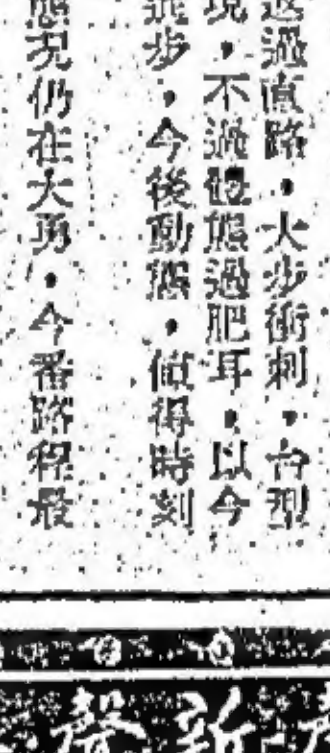 返過直路，大步衝刺，台型
現，不過體態過肥耳，以今
步，今後動態，值得時刻
態况仍在大勇，今番路程最
新聲